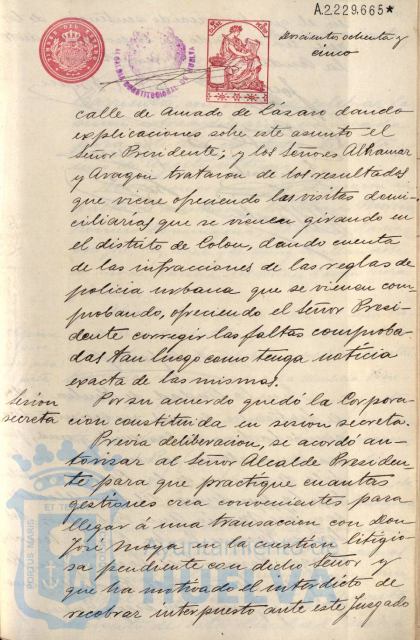 A.2.229.665*
Doscientos ochenta y
cinco
ALCALDIA CONSTITUCIONAL DE HUELVA
calle de Amado de Lázaro dando
explicaciones sobre este asunto el
Señor Presidente; y los Señores Alhamar
y Aragon trataron de los resultados
que viene ofreciendo las visitas domi-
ciliarias que se vienen girando en
el distrito de Colon, dando cuenta
de las infracciones de las reglas de
policia urbana que se vienen com
probando, ofreciendo el Señor Presi-
dente corregir las faltas comproba-
das tan luego como tenga noticia
exacta de las mismas.
Sesion
secreta
Por su acuerdo quedó la Corpora-
cion constituida en sesion secreta.
Previa deliberacion, se acordó au-
torizar al Señor Alcalde Presiden-
te para que practique cuantas
gestiones crea convenientes para
llegar á una transaccion con Don
José Moya en la cuestion litigio-
sa pendiente con dicho Señor y
que ha motivado el interdicto de
recobrar interpuesto ante este Juzgado
PORTUS MARIS
ET TE
Ayuntamiento
HUELVA